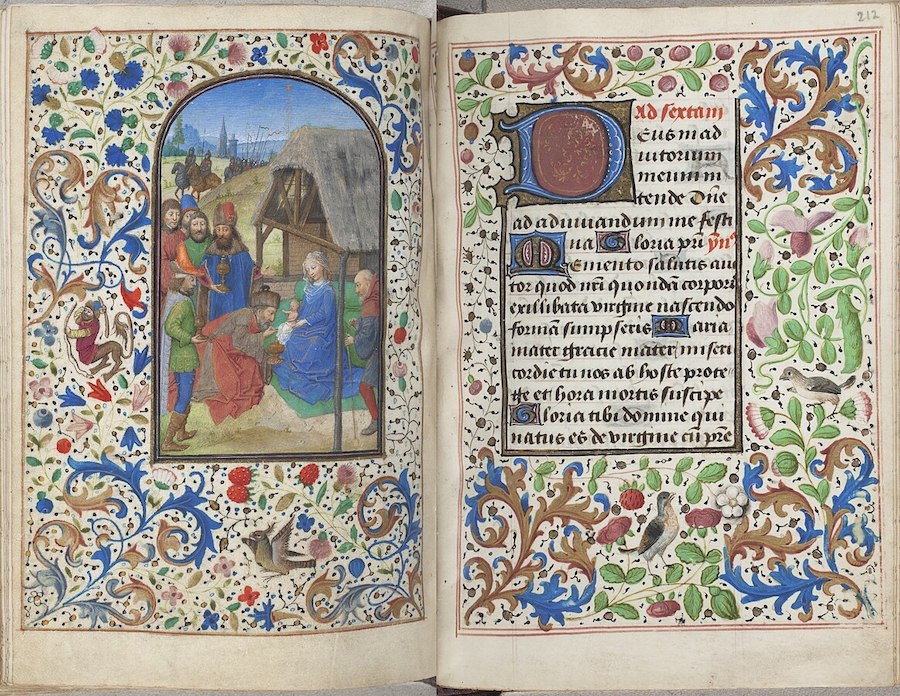 212
Ad sextam
Deus in ad
iutorium
meum in
tende Dñe
ad adiuuandum me festi
na Gloria pri ÿn9
Memento salutis auc
tor quod nri quondã corporis
ex illibata virgine nascendo
formã sumpseris Maria
mater gracie mater miseri
cordie tu nos ab hoste prote-
ge et hora mortis suscipe
Gloria tibi domine qui
natus es de virgine cũ pre